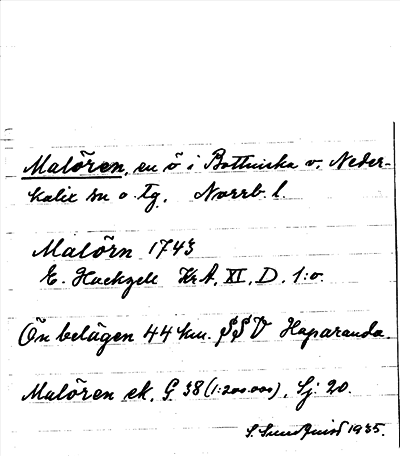 Malören, en ö i Bottniska v. Neder-
kalix sn o. tg. Norrb. l.
Malörn 1743
E. Hackzell Kr A, XI, D. 1:o.
Ön belägen 44 km. SSV Haparanda.
Malören ek. G 38 (1:200 000), Sj. 20.
S. Sundquist 1935.